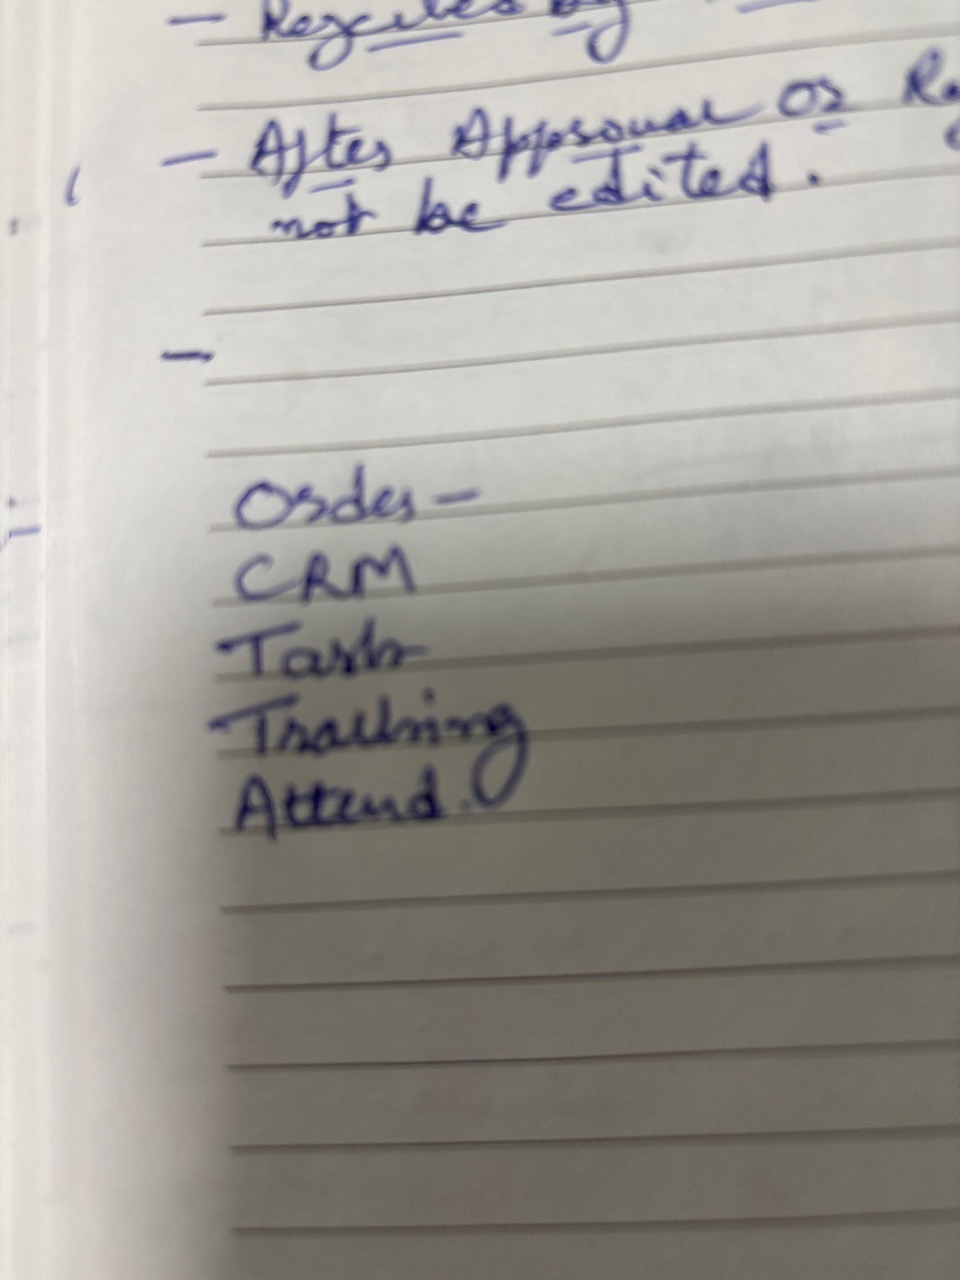 - Rejected by
- After Approval or
not be edited.
-
Order -
CRM
Task
Tracking
Attend.